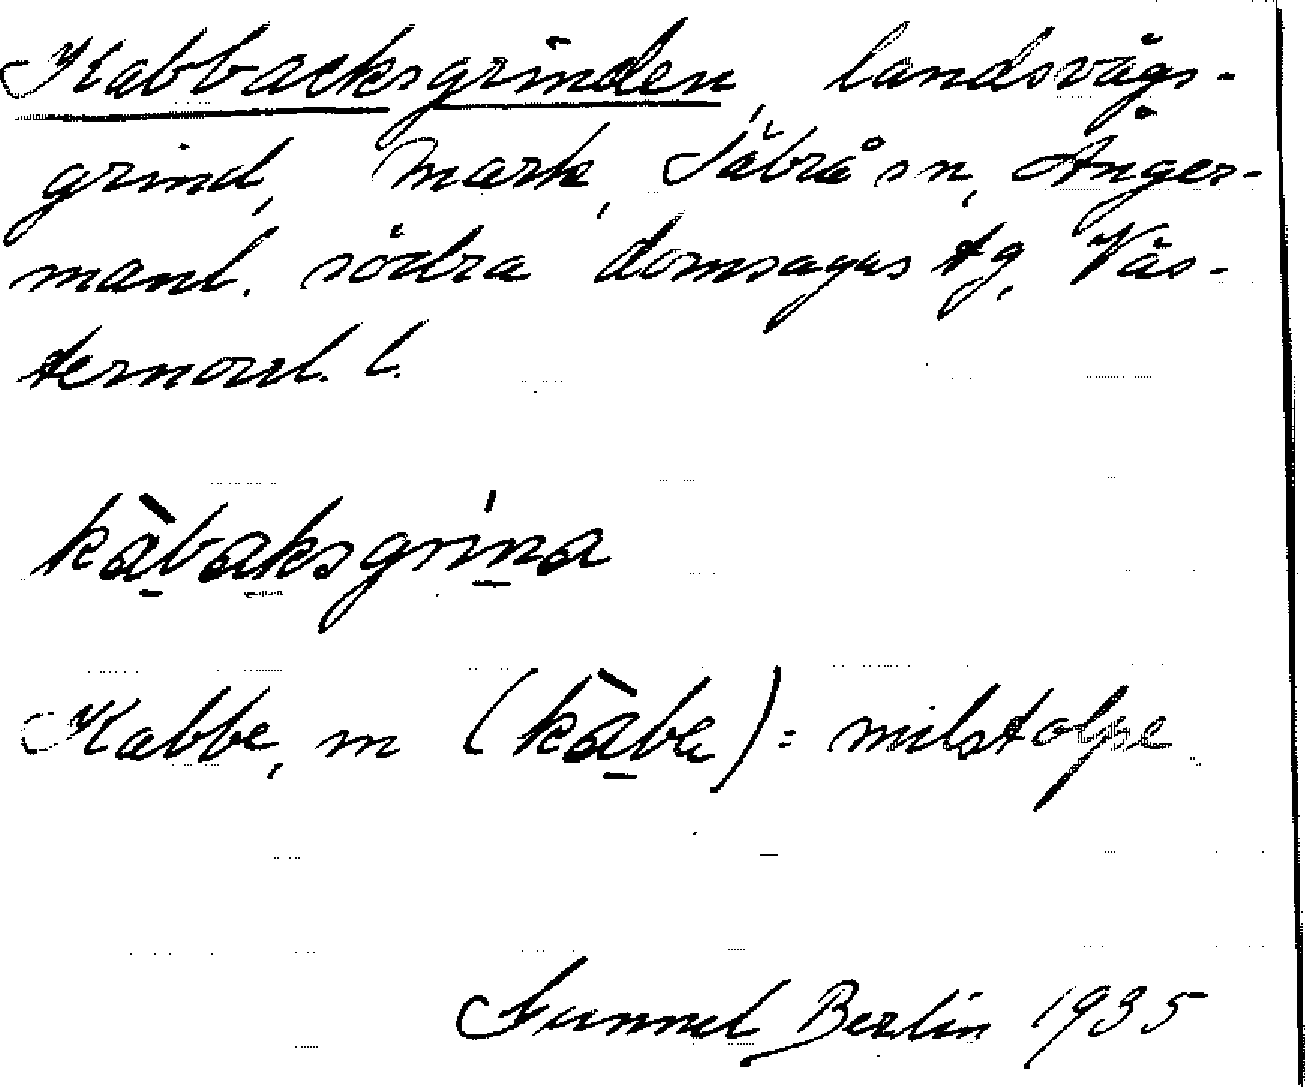 Kabbacksgrinden, landsvägs-
grind, Mark, Säbrå sn, Ånger-
manl. södra domsagas tg, Väs-
ternorrl. l.
kàbaksgrina
Kabbe, m (kàbe) = milstolpe
Gunnel Berlin 1935